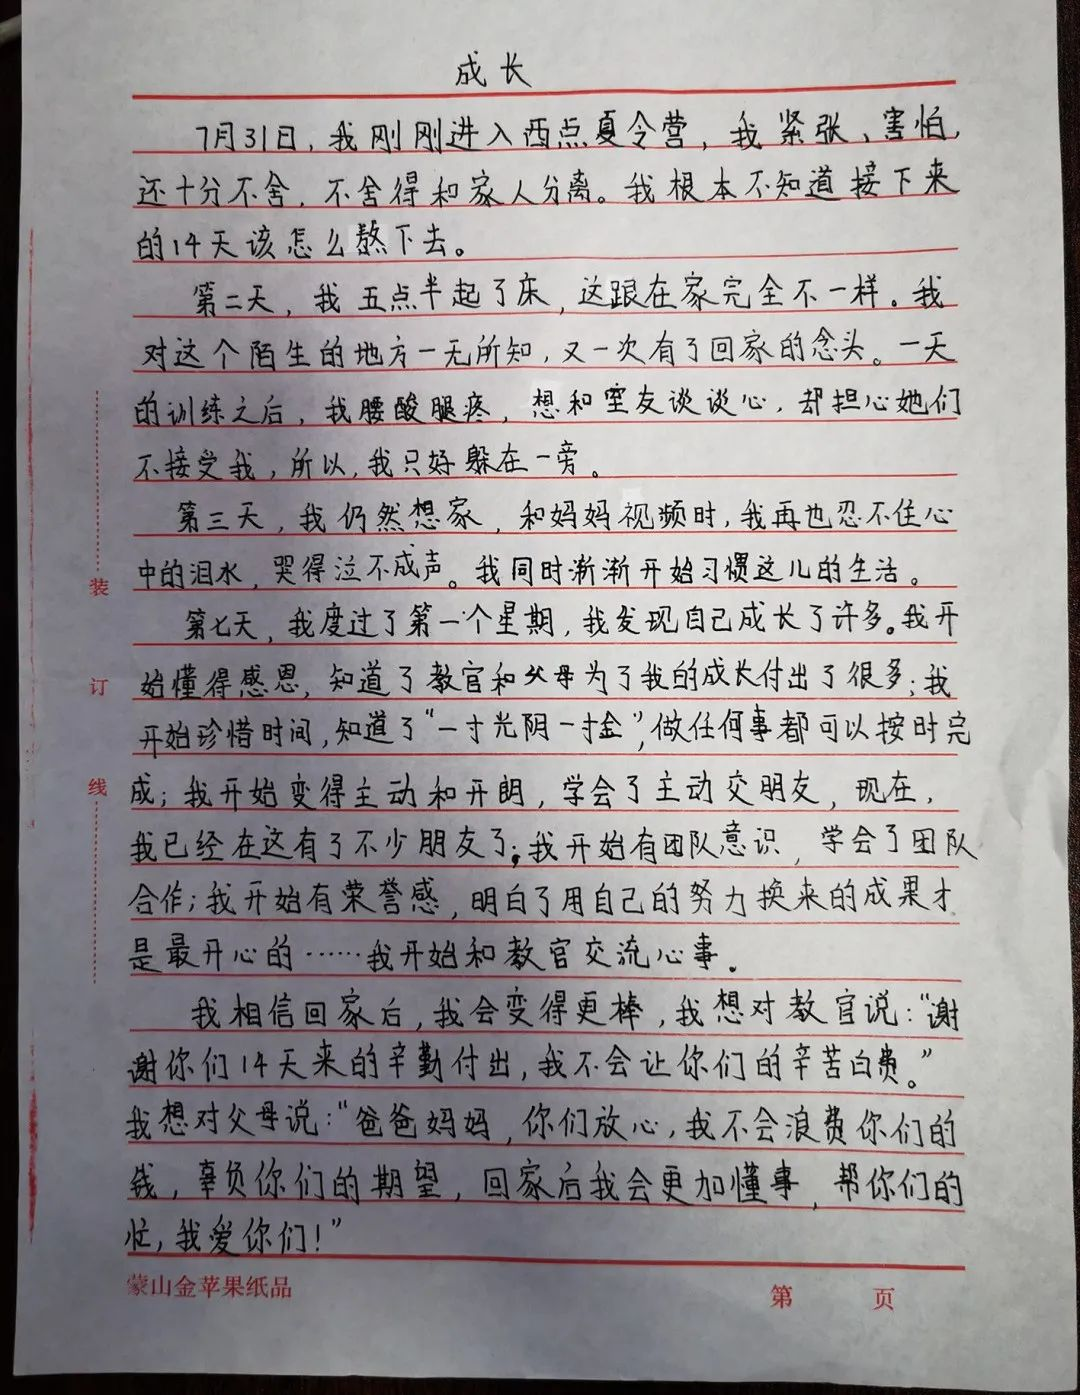 成长
7月31日，我刚刚进入西点夏令营，我紧张、害怕，
还十分不舍，不舍得和家人分离。我根本不知道接下来
的14天该怎么熬下去。
第二天，我五点半起了床，这跟在家完全不一样。我
对这个陌生的地方一无所知，又一次有了回家的念头。一天
的训练之后，我腰酸腿疼，想和室友谈谈心，却担心她们
不接受我，所以，我只好躲在一旁。
第三天，我仍然想家，和妈妈视频时，我再也忍不住心
中的泪水，哭得泣不成声。我同时渐渐开始习惯这儿的生活。
第七天，我度过了第一个星期，我发现自己成长了许多。我开
始懂得感恩，知道了教官和父母为了我的成长付出了很多；我
开始珍惜时间，知道了“一寸光阴一寸金”，做任何事都可以按时完
成；我开始变得主动和开朗，学会了主动交朋友，现在，
我已经在这有了不少朋友了；我开始有团队意识，学会了团队
合作；我开始有荣誉感，明白了用自己的努力换来的成果才
是最开心的……我开始和教官交流心事。
我相信回家后，我会变得更棒，我想对教官说：“谢
谢你们14天来的辛勤付出，我不会让你们的辛苦白费。”
我想对父母说：“爸爸妈妈，你们放心，我不会浪费你们的
钱，辜负你们的期望，回家后我会更加懂事，帮你们的
忙，我爱你们！”
装
订
线
蒙山金苹果纸品
第 页